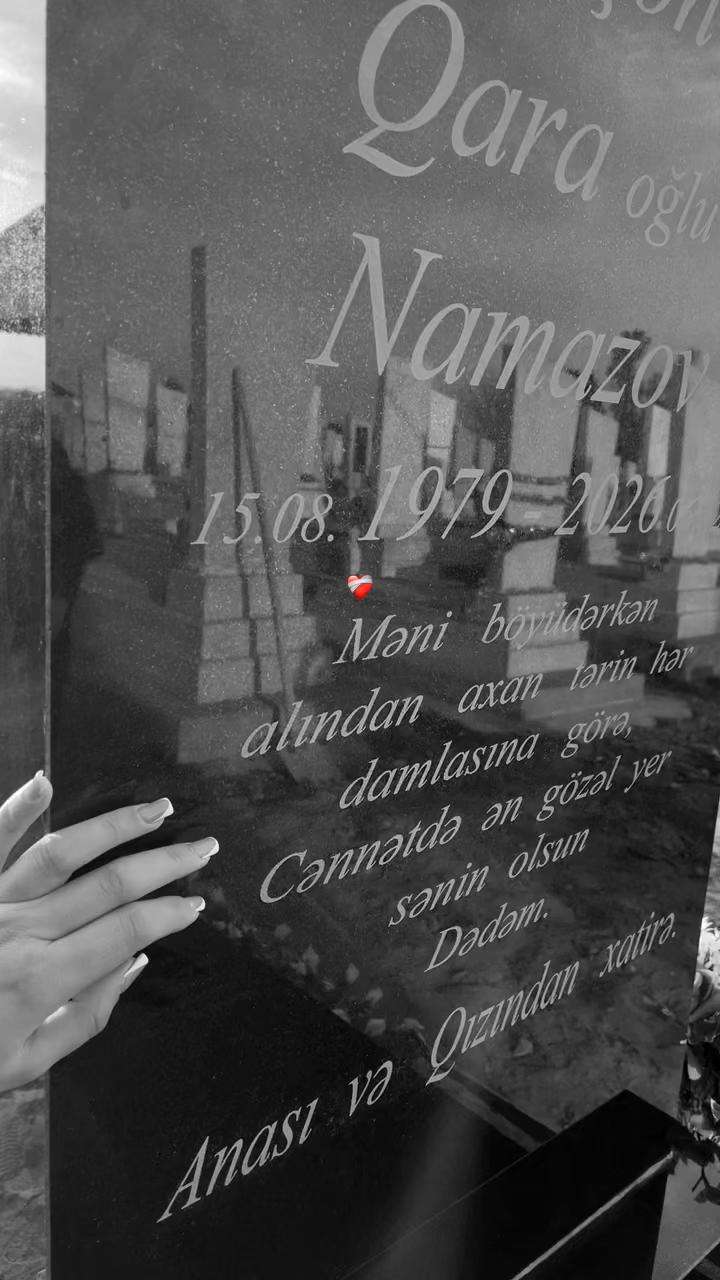 Qara oğlu
Namazov
15.08.1979 - 2026.
Məni böyüdərkən
alından axan tərin hər
damlasına görə,
Cənnətdə ən gözəl yer
sənin olsun
Dədəm.
Anası və Qızından xatirə.